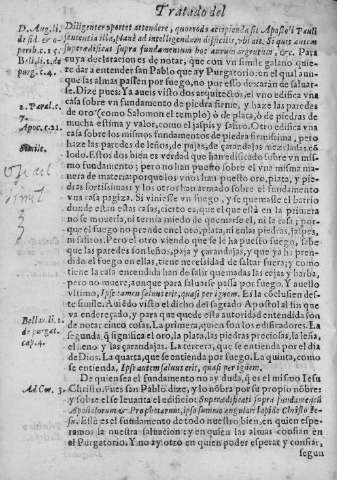 Tratado del
D. Aug. li.
de fid. & o-
perib. c. 15.
Bell. li. 1. de
purg. c. 4.
Diligenter oportet attendere, quomodo accipienda sit Apostoli Pauli
sententia illa, planè ad intelligendum difficilis, vbi ait. Si quis autem
superædificat supra fundamentum hoc aurum argentum, &c. Para
cuya declaracion es de notar, que con vn simile galano quie
re dar a entender san Pablo que ay Purgatorio, en el qual aun-
que las almas passen por fuego, no por esso dexaràn de saluar-
se. Dize pues: Ya aueis visto dos arquitectos, el vno edifica vna
2. Paral. c.
7.
Apoc. c. 21.
casa sobre vn fundamento de piedra firme, y haze las paredes
de oro (como Salomon el templo) ò de plata, ò de piedras de
mucha estima y valor, como el jaspis y safiro. Otro edifica vna
casa sobre los mismos fundamentos de piedra firmissima, pero
Simile.
haze las paredes de leños, de pajas, de cañardajas mezcladas cō
lodo. Estos dos bien es verdad que han edificado sobre vn mis-
mo fundamento; pero no han puesto sobre el vna misma ma-
nera de materia: porque los vnos han puesto oro, plata, y pie-
dras fortissimas y los otros han armado sobre el fundamento
vna casa pagiza. Si viniesse vn fuego, y se quemasse el barrio
donde estan estas casas, cierto es, que el que està en la primera
no se mouerìa, ni ternìa miedo de quemarse el, ni la casa; por-
que el fuego no prende en el oro, plata, ni en las piedras, jaspes,
ni safiros. Pero el otro viendo que se le ha puesto fuego, sabe
que las paredes son leños, paja y cañardajas, y que ya ha pren-
dido el fuego en ellas, tiene necessidad de saltar fuera; y como
tiene la casa encendida han de salir quemadas las cejas y barba,
pero no muere, aunque para saluarse passa por fuego. Y aue llo
vltimo, Ipse tamen saluus erit, quasi per ignem. Es la cōclusion des-
te simile. Auiēdo visto el dicho del sagrado Apostol al fin que
Bellar. li. 1.
de purgat.
cap. 4.
va endereçado, y para que quede esta autoridad entendida son
de notar cinco cosas. La primera, quien son los edificadores. La
segunda, q̃ significa el oro, la plata, las piedras preciosas, la leña,
el heno y las cañardajas. La tercera, que se entienda por el dia
de Dios. La quarta, que se entienda por fuego. La quinta, como
se entienda, Ipse autem saluus erit, quasi per ignem.
De quien sea el fundamento no ay duda, q̃ es el mismo Iesu
Ad Cor. 3.
Christo. Pues san Pablo dize, y lo nōbra por su propio nōbre:
y sobre el se leuanta el edificio: Superædificati supra fundamentū
Apostolorum & Prophetarum, ipso summo angulari lapide Christo Ie-
su. Este es el fundamento de todo nuestro bien, en quien espe-
ramos la nuestra saluacion: y en quien las almas confian en
el Purgatorio. Y no ay otro en quien poder esperar y confiar,
segun